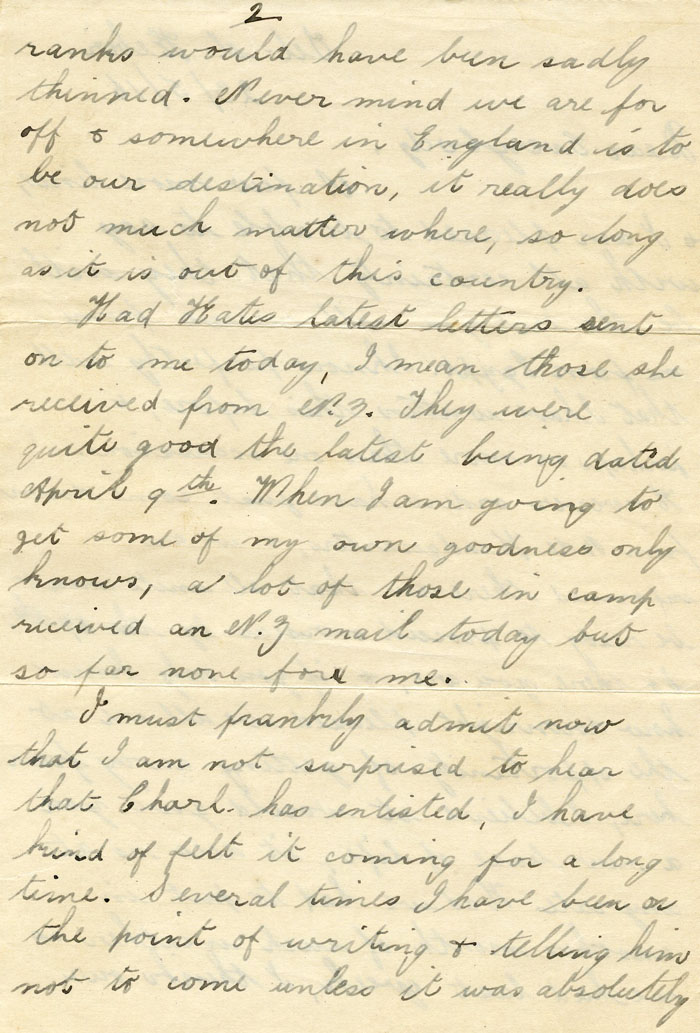 2
ranks would have been sadly
thinned. Never mind we are for
off & somewhere in England is to
be our destination, it really does
not much matter where, so long
as it is out of this country.
Had Kates latest letters sent
on to me today, I mean those she
received from N.Z. They were
quite good the latest being dated
April 9th. When I am going to
get some of my own goodness only
knows, a lot of those in camp
received an N.Z mail today but
so far none for me.
I must frankly admit now
that I am not surprised to hear
that Charl. has enlisted, I have
kind of felt it coming for a long
time. Several times I have been on
the point of writing & telling him
not to come unless it was absolutely